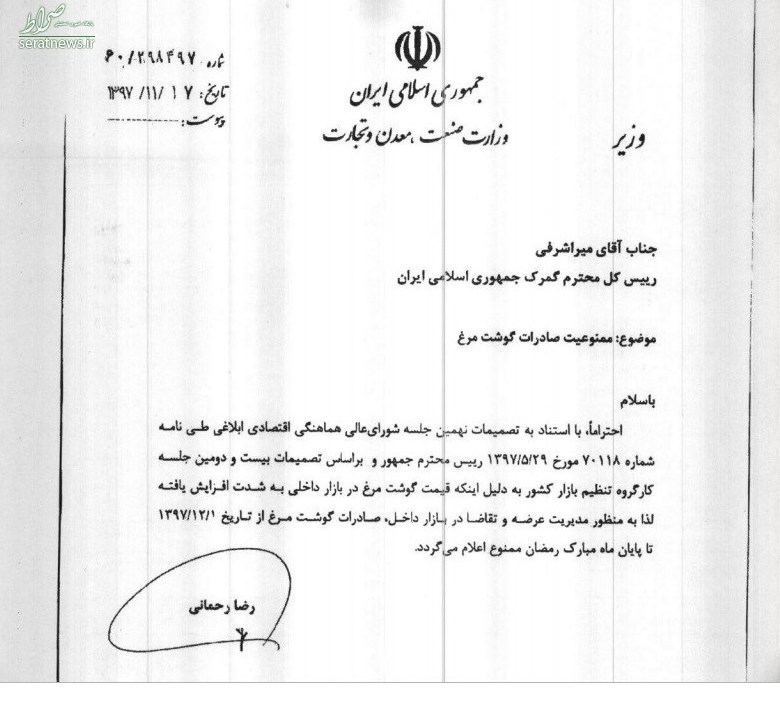 صراط
seratnews.ir
جمهوری اسلامی ایران
وزارت صنعت، معدن و تجارت
وزیر
شماره ۶۰/۲۹۸۴۹۷
تاریخ: ۱۳۹۷/۱۱/۱۷
پیوست:
جناب آقای میراشرفی
رییس کل محترم گمرک جمهوری اسلامی ایران
موضوع: ممنوعیت صادرات گوشت مرغ
باسلام
احتراماً، با استناد به تصمیمات نهمین جلسه شورای‌عالی هماهنگی اقتصادی ابلاغی طی نامه
شماره ۷۰۱۱۸ مورخ ۱۳۹۷/۵/۲۹ رییس محترم جمهور و براساس تصمیمات بیست و دومین جلسه
کارگروه تنظیم بازار کشور به دلیل اینکه قیمت گوشت مرغ در بازار داخلی به شدت افزایش یافته
لذا به منظور مدیریت عرضه و تقاضا در بازار داخل، صادرات گوشت مرغ از تاریخ ۱۳۹۷/۱۲/۱
تا پایان ماه مبارک رمضان ممنوع اعلام می‌گردد.
رضا رحمانی